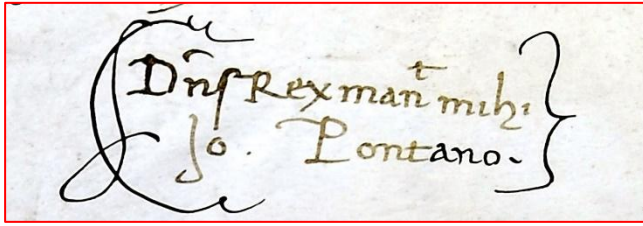 Dn̄s Rex man̄t mihi
Jo. Pontano.